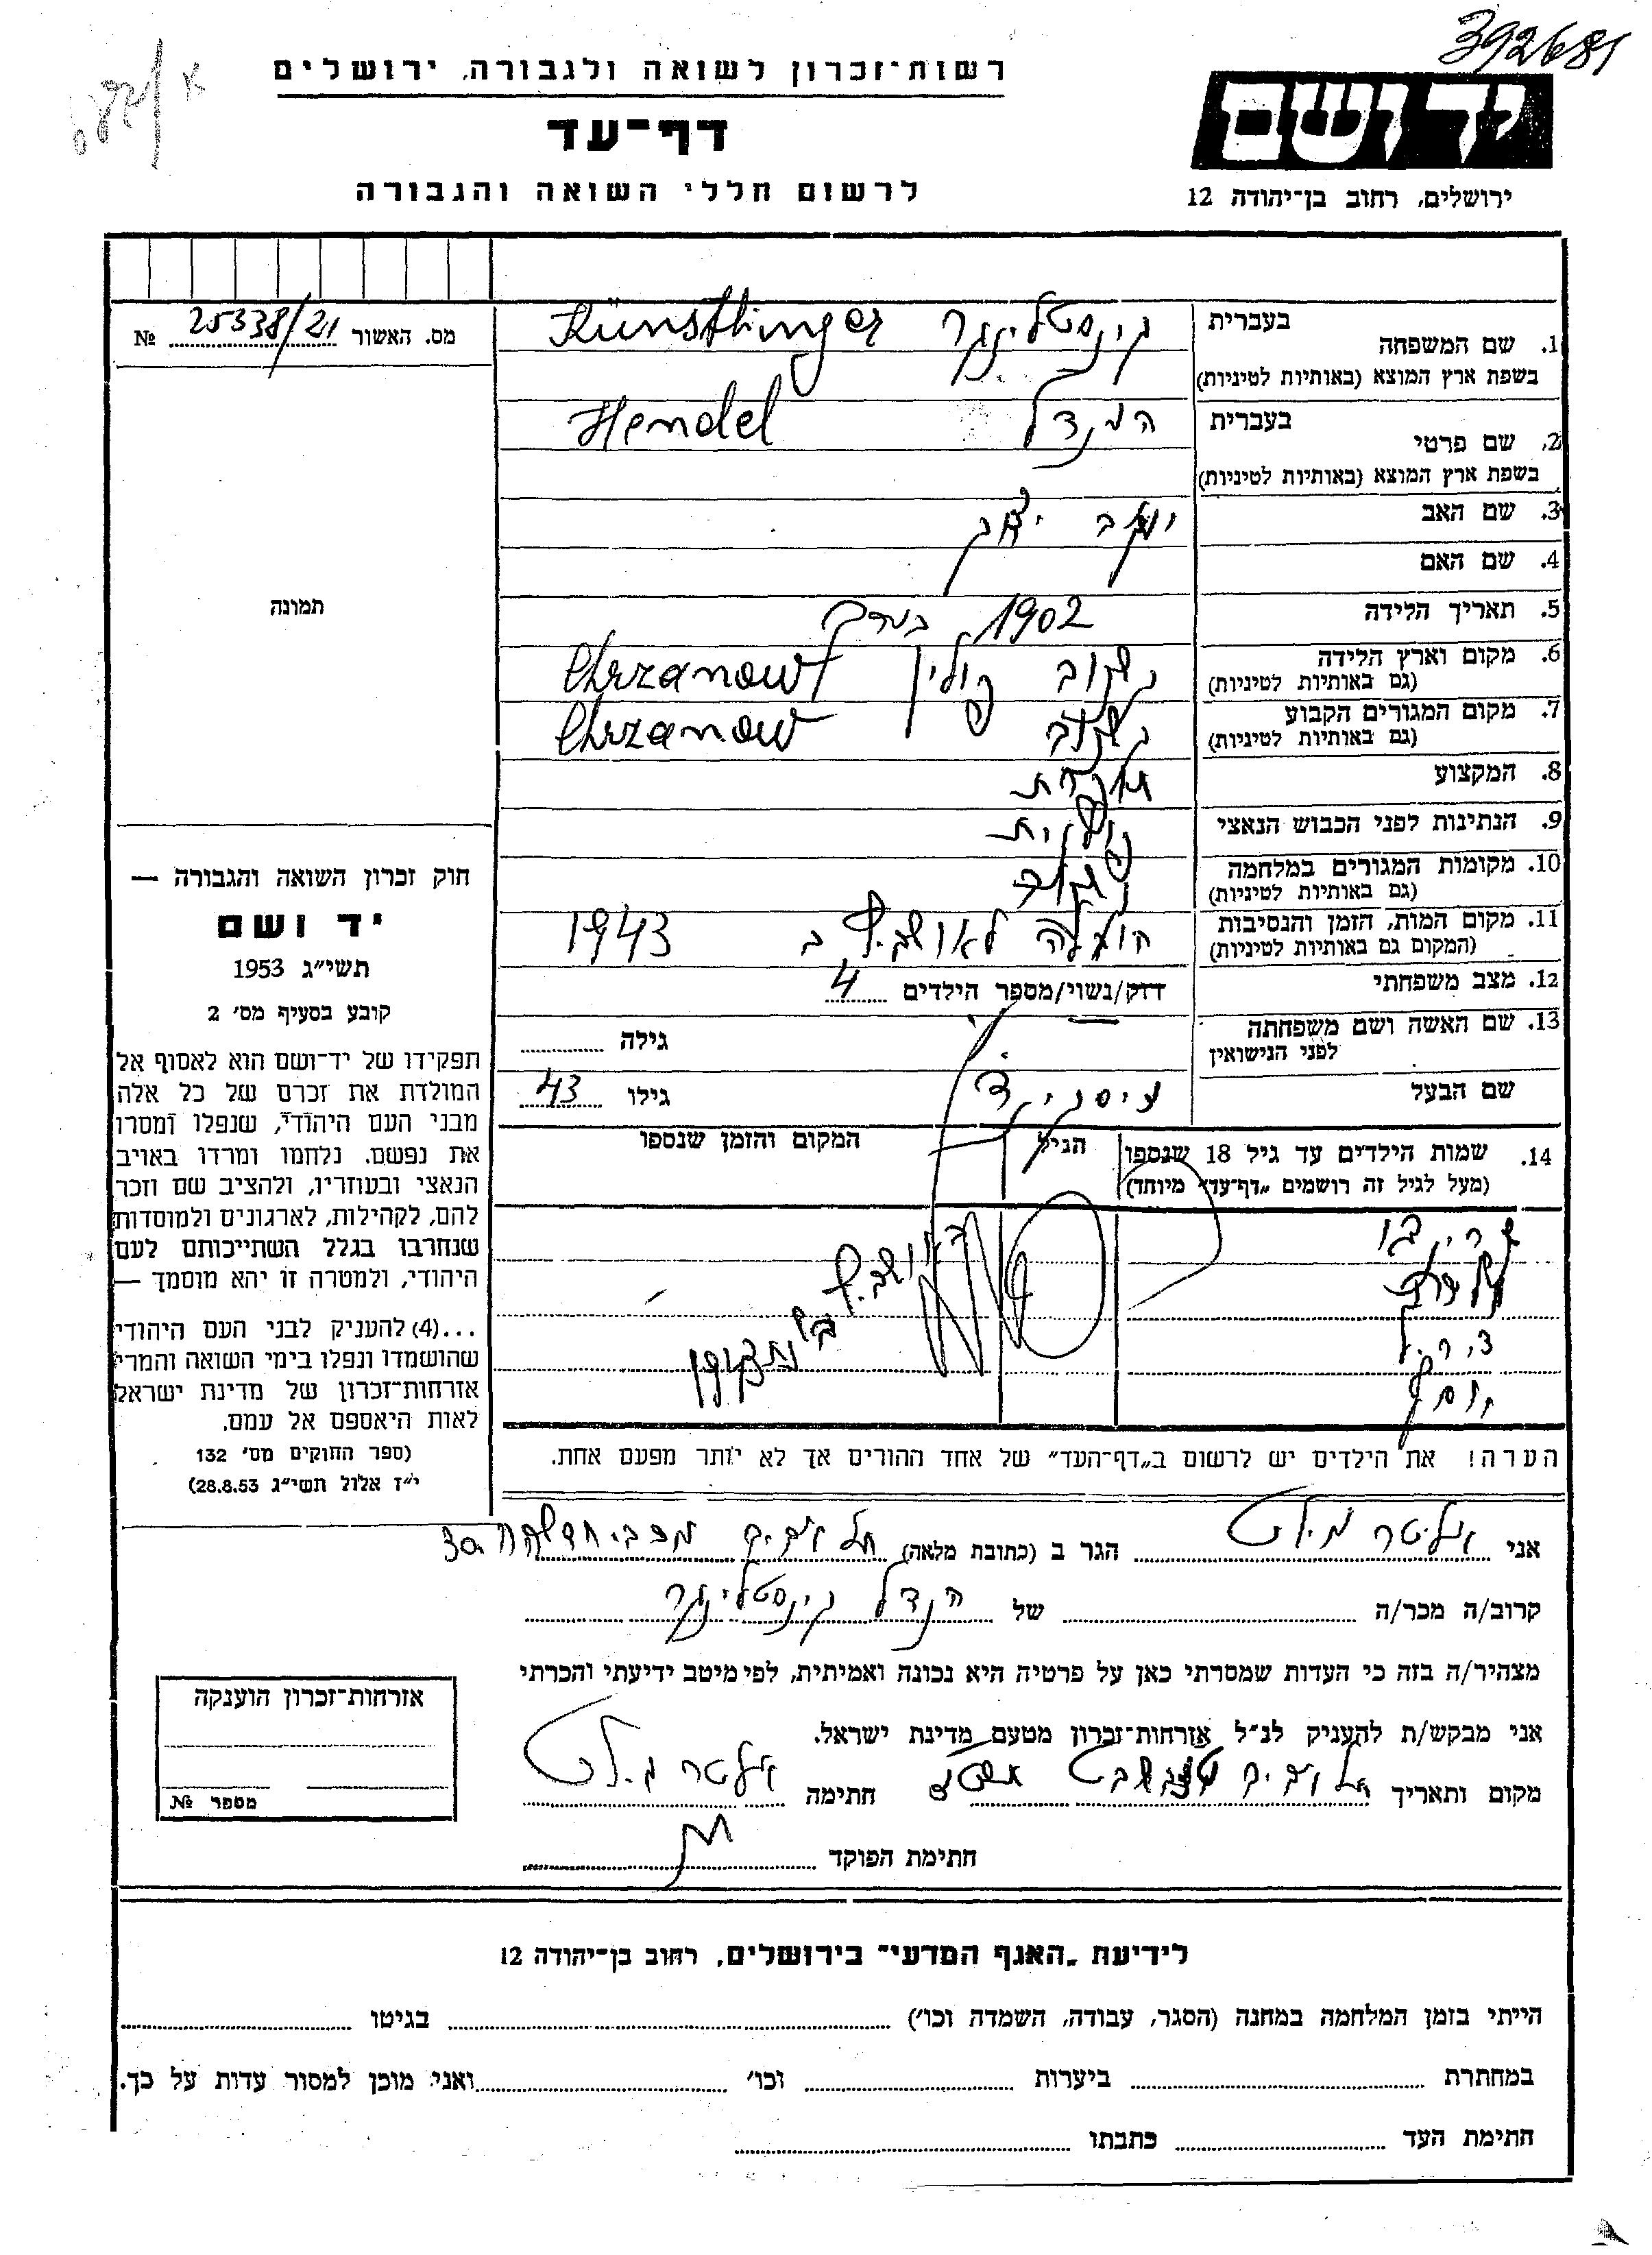 392681
רשות־זכרון לשואה ולגבורה, ירושלים
דף־עד
לרשום חללי השואה והגבורה
יד ושם
ירושלים, רחוב בן־יהודה 12
מס. האשור 25338/21 №
תמונה
חוק זכרון השואה והגבורה —
יד ושם
תשי״ג 1953
קובע בסעיף מס׳ 2
תפקידו של יד־ושם הוא לאסוף אל
המולדת את זכרם של כל אלה
מבני העם היהודי, שנפלו ומסרו
את נפשם. נלחמו ומרדו באויב
הנאצי ובעוזריו, ולהציב שם וזכר
להם, לקהילות, לארגונים ולמוסדות
שנחרבו בגלל השתייכותם לעם
היהודי, ולמטרה זו יהא מוסמך —
...(4) להעניק לבני העם היהודי
שהושמדו ונפלו בימי השואה והמרי
אזרחות־זכרון של מדינת ישראל
לאות היאספם אל עמם.
(ספר החוקים מס׳ 132
י״ז אלול תשי״ג 28.8.53)
1. שם המשפחה בעברית קינסטלינגר Künstlinger
בשפת ארץ המוצא (באותיות לטיניות)
2. שם פרטי בעברית הינדל Hendel
בשפת ארץ המוצא (באותיות לטיניות)
3. שם האב יעקב יצחק
4. שם האם
5. תאריך הלידה 1902 בערך
6. מקום וארץ הלידה (גם באותיות לטיניות) פולין Chrzanow
7. מקום המגורים הקבוע (גם באותיות לטיניות) Chrzanow
8. המקצוע
9. הנתינות לפני הכבוש הנאצי פולנית
10. מקומות המגורים במלחמה (גם באותיות לטיניות)
11. מקום המות, הזמן והנסיבות (המקום גם באותיות לטיניות) הועלה לאושביץ ב 1943
12. מצב משפחתי רוק/נשוי/מספר הילדים 4
13. שם האשה ושם משפחתה לפני הנישואין גילה
שם הבעל זיסקינד גילו 43
14. שמות הילדים עד גיל 18 שנספו הגיל המקום והזמן שנספו
(מעל לגיל זה רושמים „דף־עד״ מיוחד)
באושביץ
רחל
יוסף
הערה! את הילדים יש לרשום ב„דף־העד״ של אחד ההורים אך לא יותר מפעם אחת.
אני אליטר הגר ב (כתובת מלאה) תל אביב
קרוב/ה מכר/ה של הנדל קינסטלינגר
מצהיר/ה בזה כי העדות שמסרתי כאן על פרטיה היא נכונה ואמיתית, לפי מיטב ידיעתי והכרתי
אני מבקש/ת להעניק לנ״ל אזרחות־זכרון מטעם מדינת ישראל.
מקום ותאריך חתימה אליטר
חתימת הפוקד
אזרחות־זכרון הוענקה
מספר №
לידיעת „האגף המדעי״ בירושלים, רחוב בן־יהודה 12
הייתי בזמן המלחמה במחנה (הסגר, עבודה, השמדה וכו׳) בגיטו
במחתרת ביערות וכו׳ ואני מוכן למסור עדות על כך.
חתימת העד כתבתו